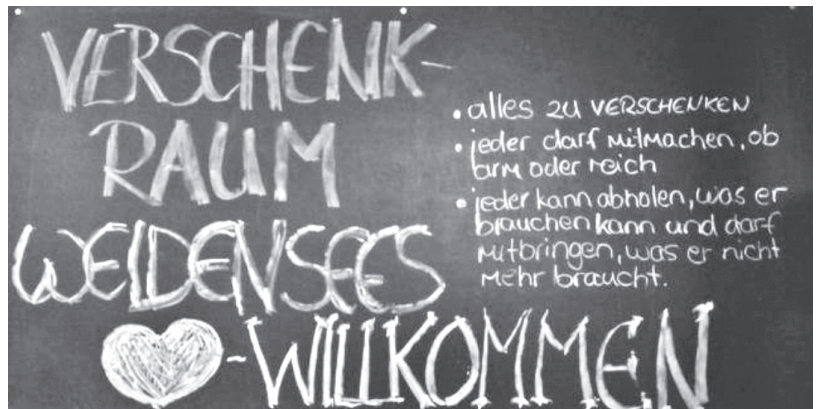 VERSCHENK-
RAUM
WEIDENSEES
-WILLKOMMEN
• alles zu VERSCHENKEN
• jeder darf mitmachen, ob
arm oder reich
• jeder kann abholen, was er
brauchen kann und darf
mitbringen, was er nicht
mehr braucht.